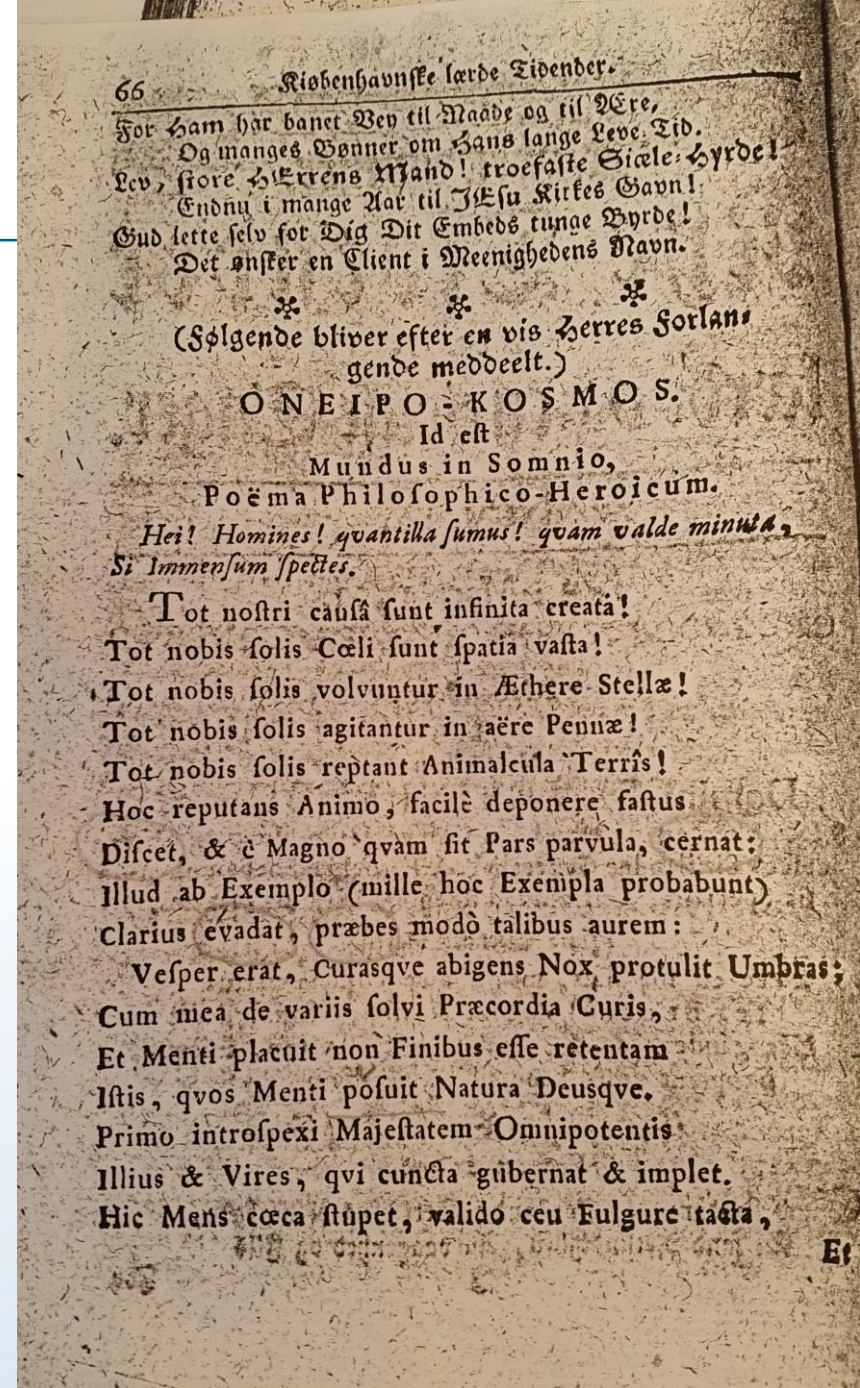 66 Kiøbenhavnske lærde Tidender.
For Ham har banet Vey til Naade og til Ære,
Og manges Bønner om Hans lange Leve-Tid.
Lev, store HErrens Mand! troefaste Siæle-Hyrde!
Endnu i mange Aar til JEsu Kirkes Gavn!
Gud lette selv for Dig Dit Embeds tunge Byrde!
Det ønsker en Client i Meenighedens Navn.
* * *
(Følgende bliver efter en vis Herres Forlan-
gende meddeelt.)
ONEIPO-KOSMOS.
Id eſt
Mundus in Somnio,
Poëma Philoſophico-Heroicum.
Hei! Homines! qvantilla ſumus! qvam valde minuta,
Si Immenſum ſpectes.
Tot noſtri cauſâ ſunt infinita creata!
Tot nobis ſolis Cœli ſunt ſpatia vaſta!
Tot nobis ſolis volvuntur in Æthere Stellæ!
Tot nobis ſolis agitantur in aëre Pennæ!
Tot nobis ſolis reptant Animalcula Terrîs!
Hoc reputans Animo, facilè deponere faſtus
Diſcet, & è Magno qvàm ſit Pars parvula, cernat:
Illud ab Exemplo (mille hoc Exempla probabunt)
Clarius evadat, præbes modò talibus aurem:
Veſper erat, Curasqve abigens Nox protulit Umbras;
Cum mea de variis ſolvi Præcordia Curis,
Et Menti placuit non Finibus eſſe retentam
Iſtis, qvos Menti poſuit Natura Deusqve.
Primo introſpexi Majeſtatem Omnipotentis
Illius & Vires, qvi cuncta gubernat & implet.
Hic Mens cœca ſtupet, valido ceu Fulgure tacta,
Et